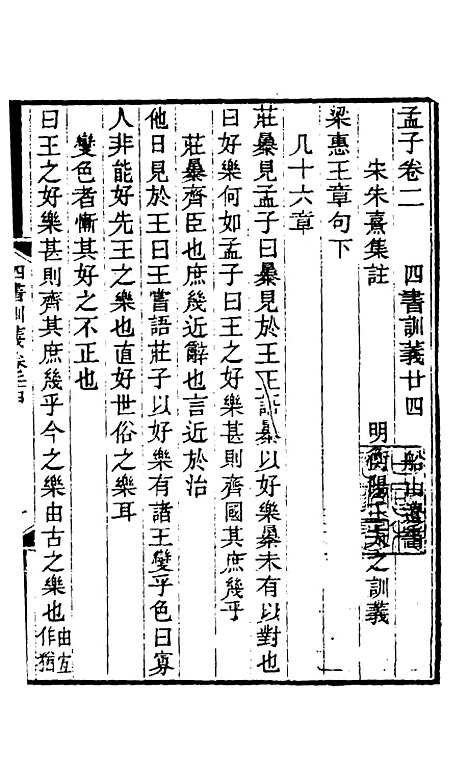 孟子卷二　四書訓義廿四　船山遺書
宋朱熹集註　明衡陽王夫之訓義
梁惠王章句下
凡十六章
莊暴見孟子曰暴見於王王語暴以好樂暴未有以對也
曰好樂何如孟子曰王之好樂甚則齊國其庶幾乎
莊暴齊臣也庶幾近辭也言近於治
他日見於王曰王嘗語莊子以好樂有諸王變乎色曰寡
人非能好先王之樂也直好世俗之樂耳
變色者慚其好之不正也
曰王之好樂甚則齊其庶幾乎今之樂由古之樂也由宜作猶
四書訓義卷二十四
一